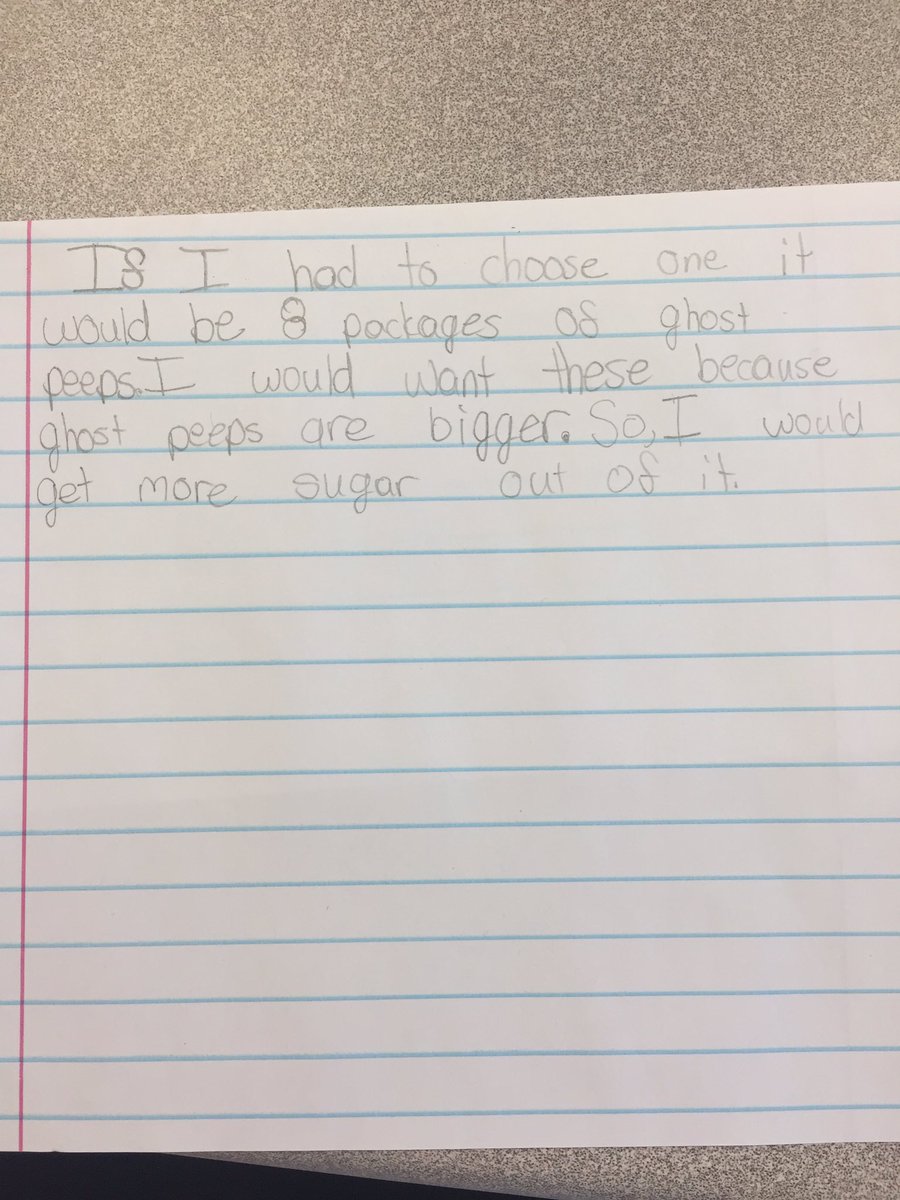 If I had to choose one it
would be 8 packages of ghost
peeps. I would want these because
ghost peeps are bigger. So, I would
get more sugar out of it.